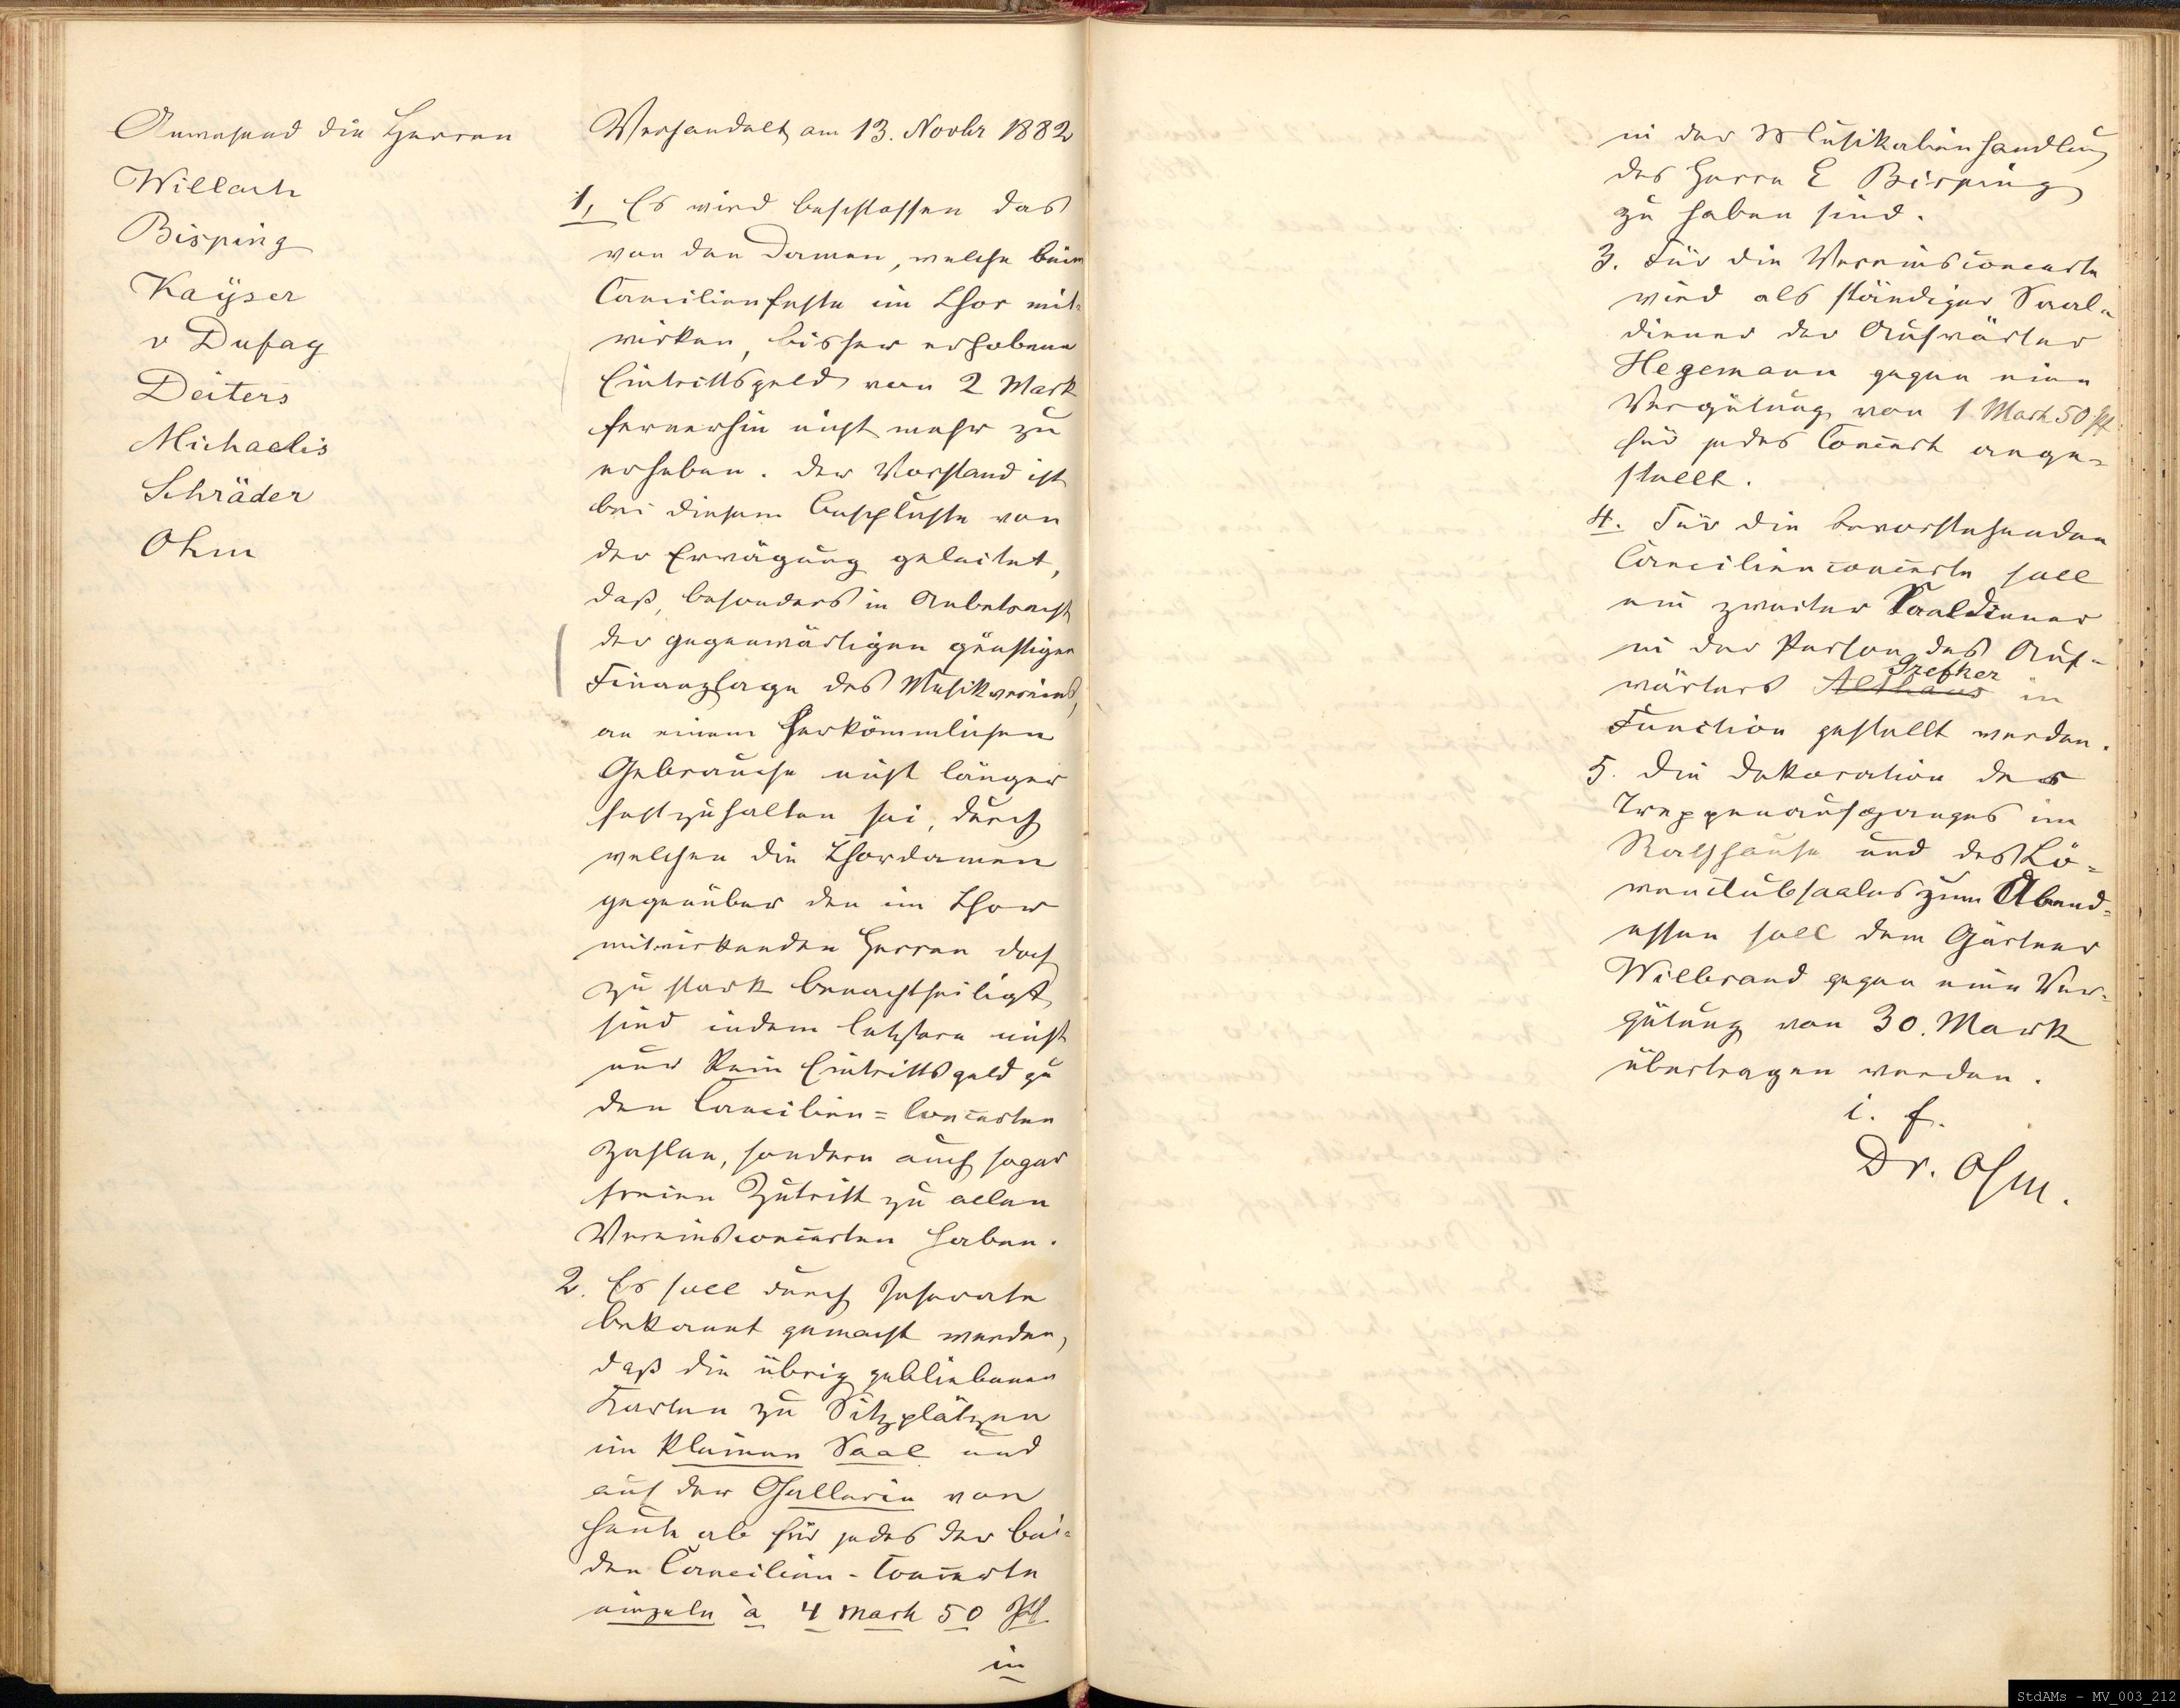 Anwesend die Herren
Willach
Bisping
Kaÿser
v Dufay
Deiters
Michaelis
Schräder
Ohm
Verhandelt am 13. Novbr 1882
1, Es wird beschlossen das
von den Damen, welche beim
Caecilienfeste im Chor mit-
wirken, bisher erhobene
Eintrittsgeld von 2 Mark
fernerhin nicht mehr zu
erheben. Der Vorstand ist
bei diesem Beschlusse von
der Erwägung geleitet,
daß, besonders in Anbetracht
der gegenwärtigen günstigen
Finanzlage des Musikvereins,
an einem herkömmlichen
Gebrauche nicht länger
festzuhalten sei, durch
welchen die Chordamen
gegenüber den im Chor
mitwirkenden Herren doch
zu stark benachtheiligt
sind indem letztere nicht
nur kein Eintrittsgeld zu
den Caecilien=Concerten
zahlen, sondern auch sogar
freien Zutritt zu allen
Vereinsconcerten haben.
2. Es soll durch Inserate
bekannt gemacht werden,
daß die übrig gebliebenen
Karten zu Sitzplätzen
im kleinen Saal und
auf der Gallerie von
heute ab für jedes der bei-
den Caecilien-Concerte
einzeln à 4 Mark 50 Pf
in
in der Musikalienhandlung
des Herrn E Bisping
zu haben sind.
3. Für die Vereinsconcerte
wird als ständiger Saal-
diener der Aufwärter
Hegemann gegen eine
Vergütung von 1 Mark 50 Pf
für jedes Concert ange-
stellt.
4. Für die bevorstehenden
Caecilienconcerte soll
ein zweiter Saaldiener
in der Person des Auf-
wärters Althaus Grefker in
Function gestellt werden.
5. Die Dekoration des
Treppenaufganges im
Rathhause und des Lö-
wenclubsaales zum Abend-
essen soll dem Gärtner
Wilbrand gegen eine Ver-
gütung von 30. Mark
übertragen werden.
i. f.
Dr. Ohm.
StdAMs - MV_003_212